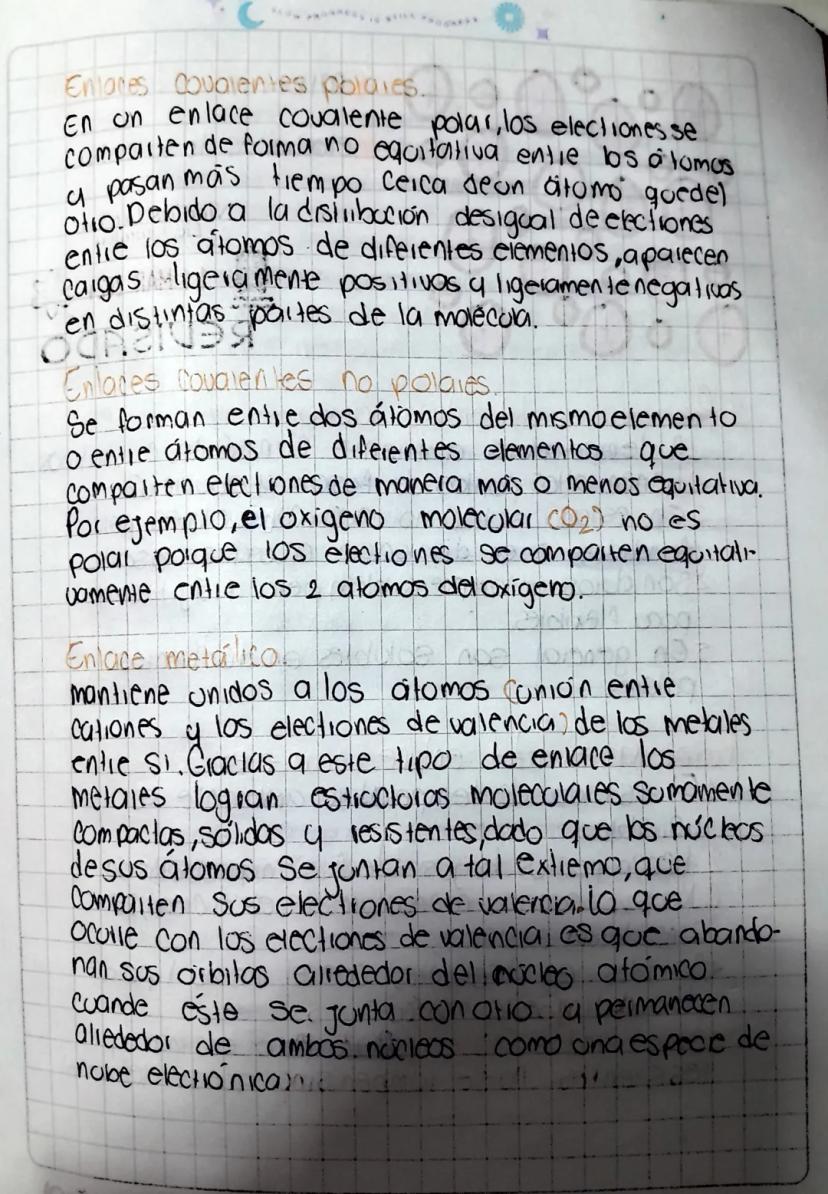 SLOW PROGRESS IS STILL PROGRESS
Enlaces covalentes polares.
En un enlace covalente polar, los electrones se
comparten de forma no equitativa entre los átomos
y pasan más tiempo cerca de un átomo que del
otro. Debido a la distribución desigual de electrones
entre los átomos de diferentes elementos, aparecen
cargas ligeramente positivas y ligeramente negativas
en distintas partes de la molécula.
REVISADO
Enlaces covalentes no polares.
Se forman entre dos átomos del mismo elemento
o entre átomos de diferentes elementos que
comparten electrones de manera más o menos equitativa.
Por ejemplo, el oxígeno molecular (O2) no es
polar porque los electrones se comparten equitati-
vamente entre los 2 atomos del oxígeno.
Enlace metálico.
mantiene unidos a los átomos (unión entre
cationes y los electrones de valencia) de los metales
entre si. Gracias a este tipo de enlace los
metales logran estructuras moleculares sumamente
compactas, sólidas y resistentes, dado que los núcleos
de sus átomos se juntan a tal extremo, que
comparten sus electrones de valencia. lo que
ocurre con los electrones de valencia es que abando-
nan sus órbitas alrededor del núcleo atómico
cuando éste se junta con otro y permanecen
alrededor de ambos núcleos como una especie de
nube electrónica